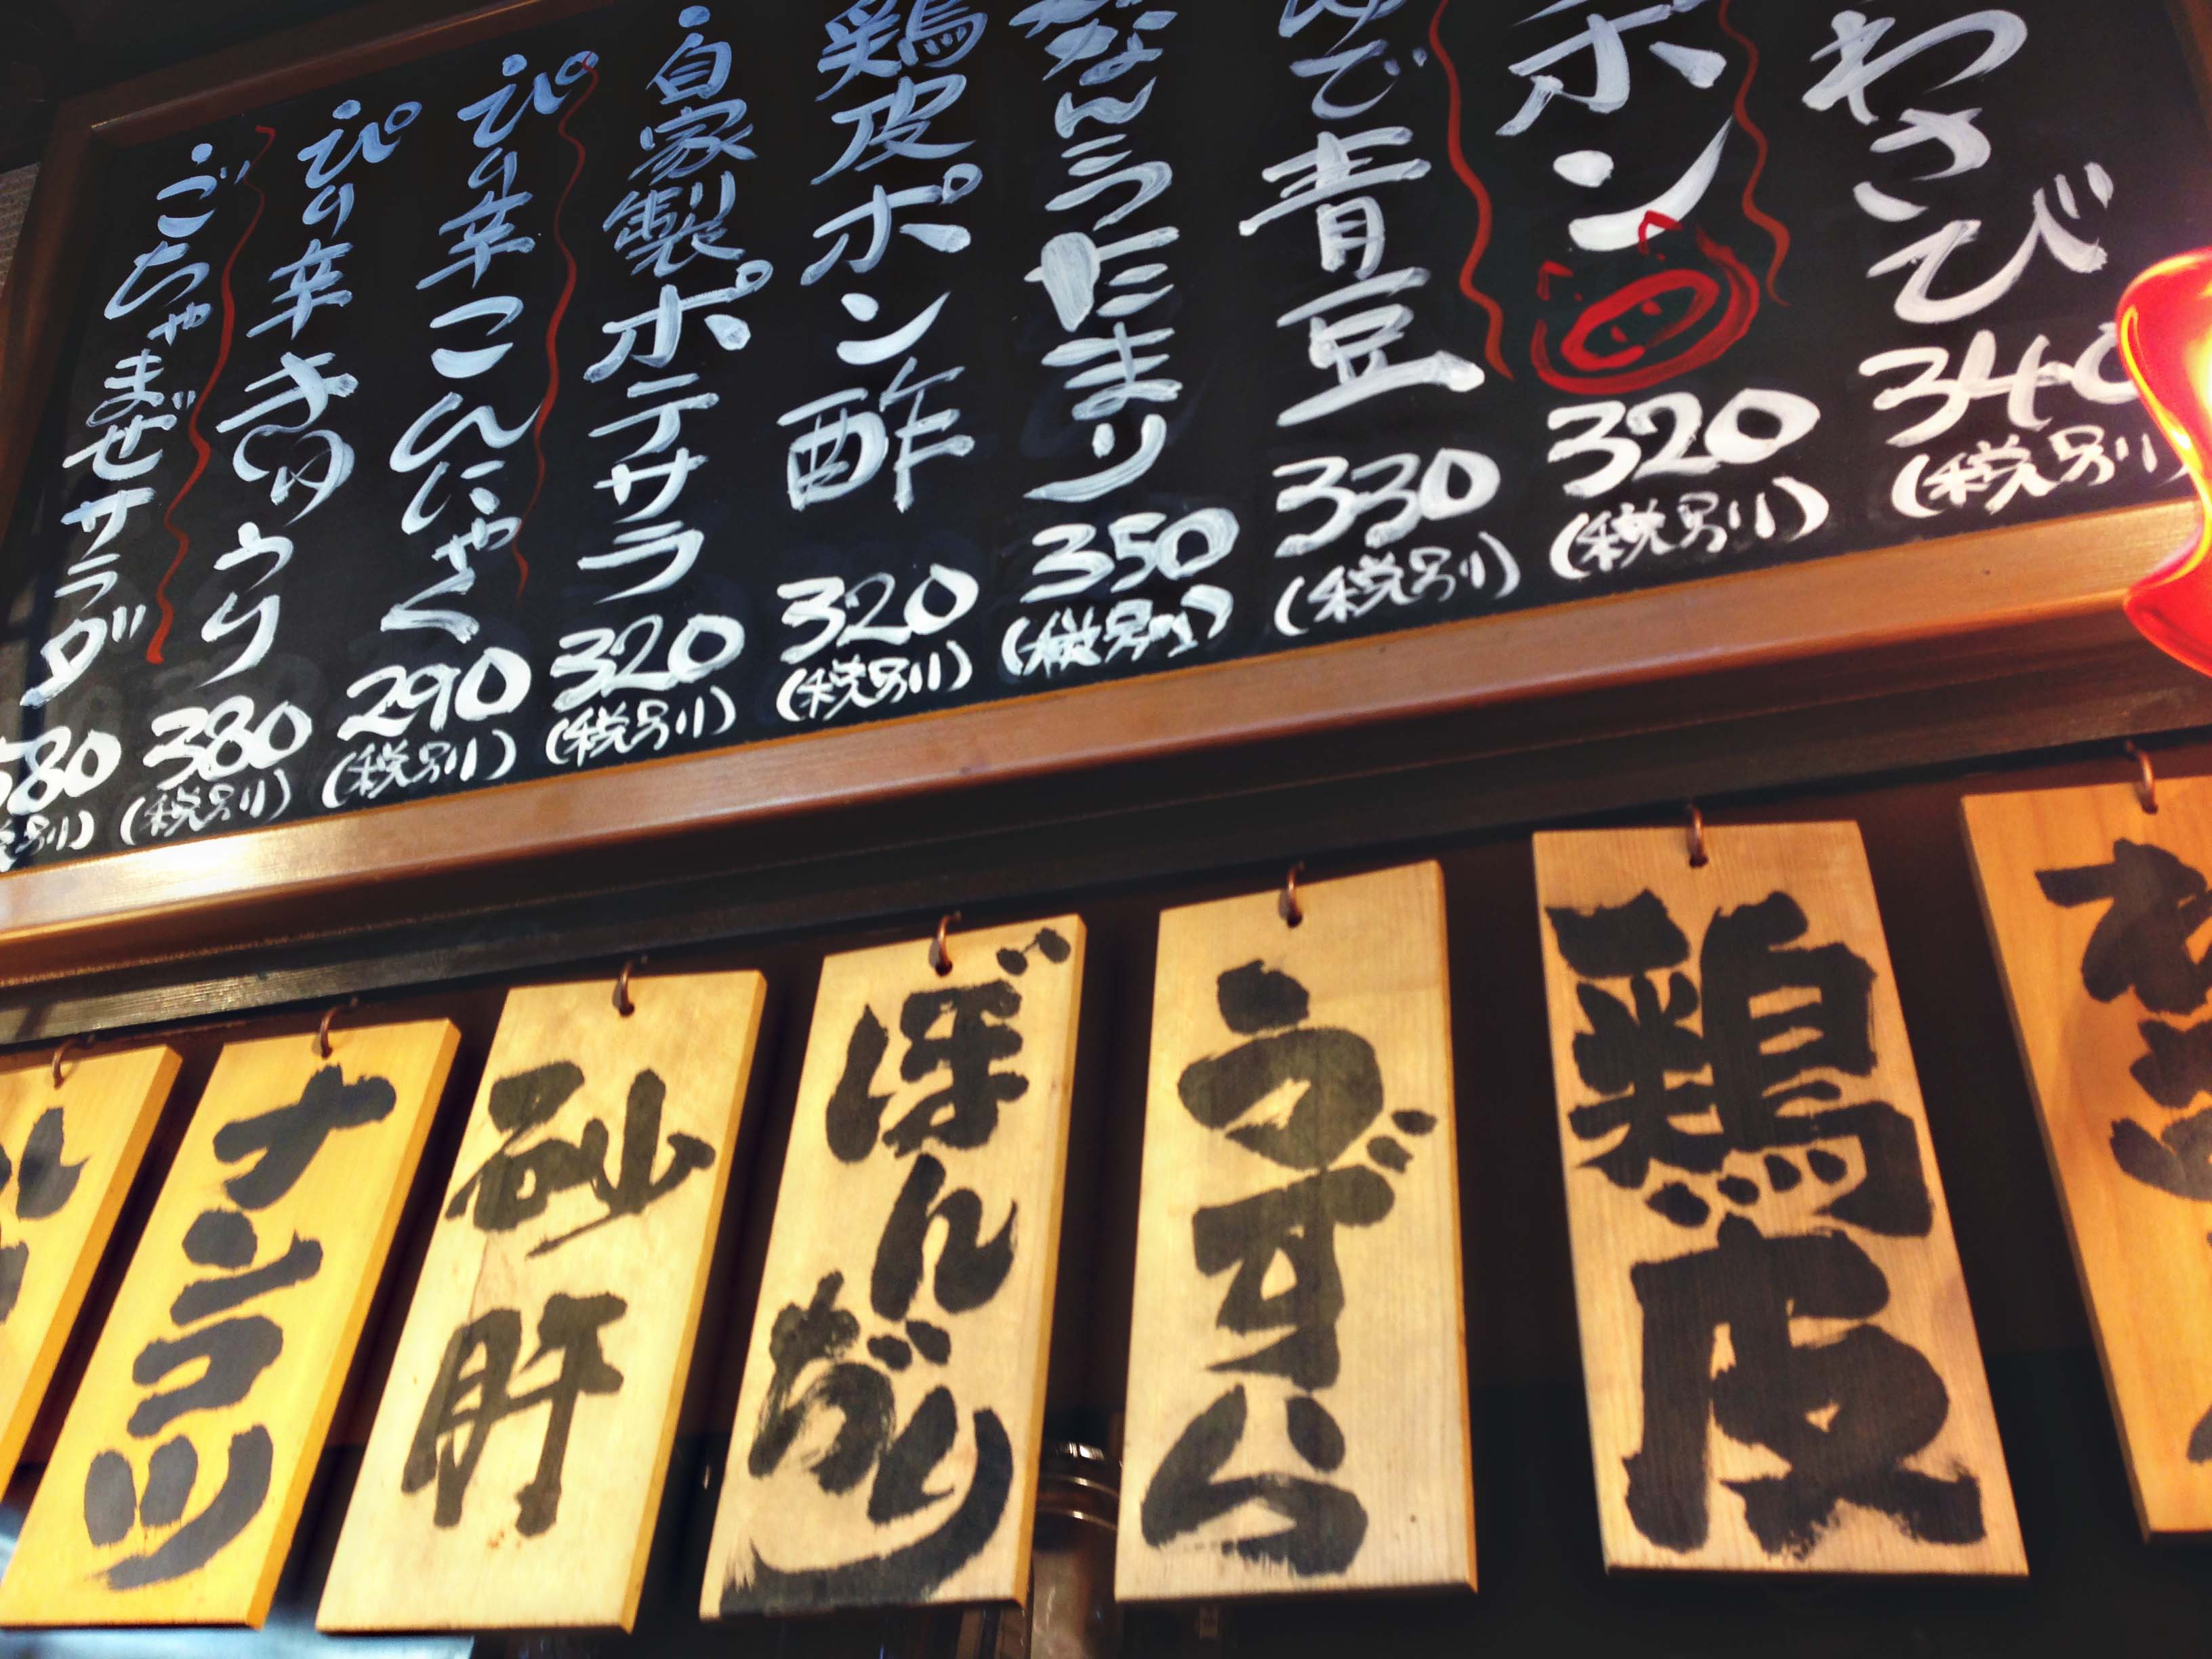 わさび 340 (税別)
ポン 320 (税別)
ゆで青豆 330 (税別)
なんこつたまり 350 (税別)
鶏皮ポン酢 320 (税別)
自家製ポテサラ 320 (税別)
ぴり辛こんにゃく 290 (税別)
ぴり辛きゅうり 380 (税別)
ごちゃまぜサラダ 580 (税別)
鶏皮
うずら
ぼんぢり
砂肝
ナンコツ